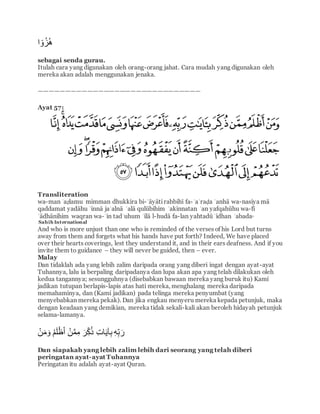 هُزُوًا
sebagai senda gurau.
Itulah cara yang digunakan oleh orang-orang jahat. Cara mudah yang digunakan oleh
mereka akan adalah menggunakan jenaka.
Ayat 57:
وَمَنۡ أَظۡلَمُ مِمَّن ذُكِّرَ بِـَٔايَـٰتِ رَبِّهِۦ فَأَعۡرَضَ عَنۡهَا وَنَسِىَ مَا قَدَّمَتۡ يَدَاهُ‌ۚ إِنَّا
جَعَلۡنَا عَلَىٰ قُلُوبِهِمۡ أَڪِنَّةً أَن يَفۡقَهُوهُ وَفِىٓ ءَاذَانِہِمۡ وَقۡرً۬ا‌ۖ وَإِن
تَدۡعُهُمۡ إِلَى ٱلۡهُدَىٰ فَلَن يَہۡتَدُوٓاْ إِذًا أَبَدً۬ا ٥٧
Transliteration
waJman ʾaẓlamu mimman dhukkira bi-ʾāyāti rabbihī fa-ʾaʿraḍa ʿanhā wa-nasiya mā
qaddamat yadāhu ʾinnā jaʿalnā ʿalā qulūbihim ʾakinnatan ʾan yafqahūhu wa-fī
ʾādhānihim waqran wa-ʾin tadʿuhum ʾilā l-hudā fa-lan yahtadū ʾidhan ʾabada-
Sahih International
And who is more unjust than one who is reminded of the verses of his Lord but turns
away from them and forgets what his hands have put forth? Indeed, We have placed
over their hearts coverings, lest they understand it, and in their ears deafness. And if you
invite them to guidance – they will never be guided, then – ever.
Malay
Dan tidaklah ada yang lebih zalim daripada orang yang diberi ingat dengan ayat-ayat
Tuhannya, lalu ia berpaling daripadanya dan lupa akan apa yang telah dilakukan oleh
kedua tangannya; sesungguhnya (disebabkan bawaan mereka yang buruk itu) Kami
jadikan tutupan berlapis-lapis atas hati mereka, menghalang mereka daripada
memahaminya, dan (Kami jadikan) pada telinga mereka penyumbat (yang
menyebabkan mereka pekak). Dan jika engkau menyeru mereka kepada petunjuk, maka
dengan keadaan yang demikian, mereka tidak sekali-kali akan beroleh hidayah petunjuk
selama-lamanya.
وَمَنْ أَظْلَمُ مِمَّنْ ذُكِّرَ بِآيَاتِ رَبِّهِ
Dan siapakah yang lebih zalim lebih dari seorang yang telah diberi
peringatan ayat-ayat Tuhannya
Peringatan itu adalah ayat-ayat Quran.